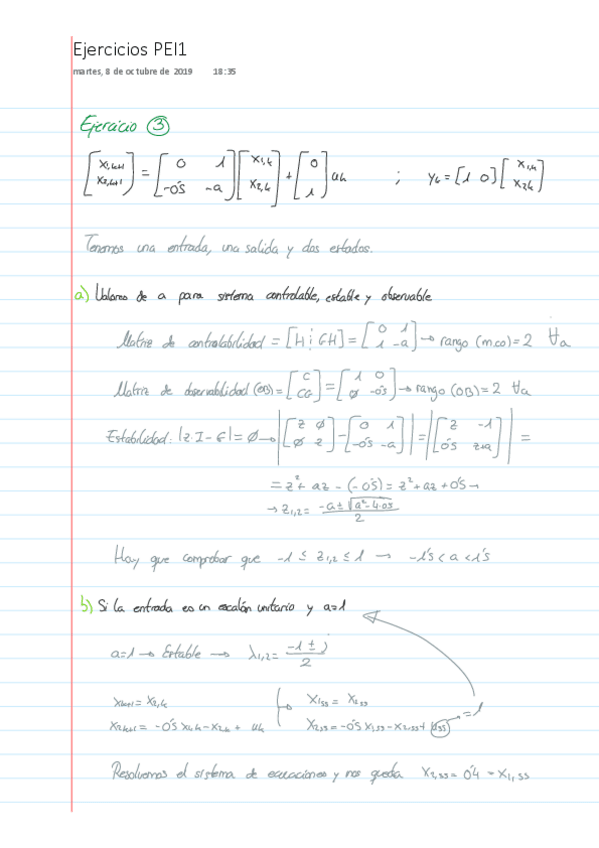 Ejercicios PEI1
martes, 8 de octubre de 2019 18:35
Ejercicio ③
[x1,k+1 x2,k+1] = [0 1 -0's -a] [x1,k x2,k] + [0 1] uk ; yk = [1 0] [x1,k x2,k]
Tenemos una entrada, una salida y dos estados.
a) Valores de a para sistema controlable, estable y observable
Matriz de controlabilidad = [H ⋮ GH] = [0 1 1 -a] → rango (m.co) = 2 ∀a
Matriz de observabilidad (OB) = [C CG] = [1 0 ∅ -0's] → rango (OB) = 2 ∀a
Estabilidad: |z·I - G| = ∅ → |[z ∅ ∅ z] - [0 1 -0's -a]| = |[z -1 0's z+a]| =
= z² + az - (-0's) = z² + az + 0's →
→ z1,2 = (-a ± √(a² - 4·0's)) / 2
Hay que comprobar que -1 ≤ z1,2 ≤ 1 → -1's < a < 1's
b) Si la entrada es un escalón unitario y a=1
a=1 → Estable → λ1,2 = (-1 ± j) / 2
x1k+1 = x2,k x1ss = x2ss
x2k+1 = -0's x1,k - x2,k + uk x2ss = -0's x1ss - x2ss + uss = 1
Resolvemos el sistema de ecuaciones y nos queda x2,ss = 0'4 = x1,ss